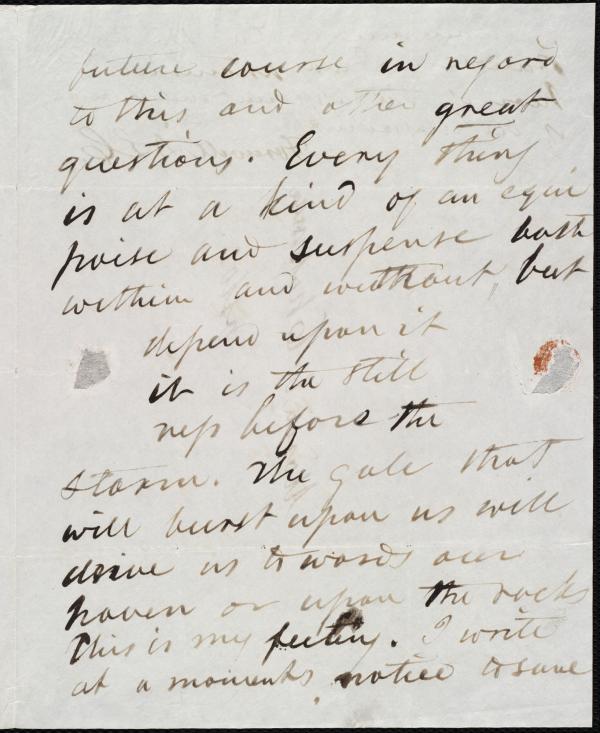 future course in regard
to this and other great
questions. Every thing
is at a kind of an equi
poise and suspense both
within and without, but
depend upon it
it is the still
ness before the
storm. The gale that
will burst upon us will
drive us towards our
haven or upon the rocks
This is my feeling. I write
at a moments notice to save